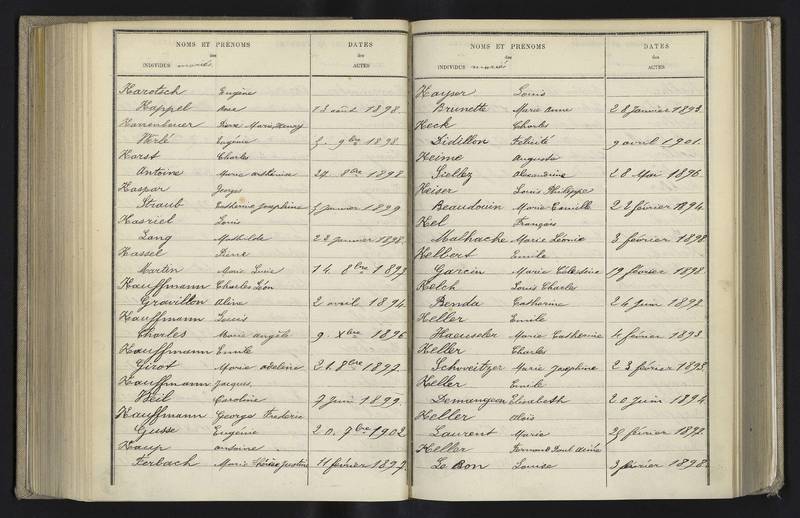 NOMS ET PRÉNOMS
des
INDIVIDUS mariés
DATES
des
ACTES
Karotsch Eugène
Kappel Anne 13 août 1898.
Pierre Marie Henry
Werlé Eugénie 9bre 1898
Karst Charles
Antoine Marie 29 8bre 1898
Kaspar Georges
Straub Catherine Joséphine 5 janvier 1899
Kasriel Louis
Lang Mathilde 22 janvier 1898.
Kassel Pierre
Martin Marie Lucie 14 8bre 1897
Kauffmann Charles Léon
Gravillon Aline 2 avril 1894.
Kauffmann Louis
Charles Marie Angèle 9. Xbre 1896
Kauffmann Emile
Girot Marie Adeline 21. 8bre 1897.
Kauffmann Jacques
Weil Caroline 7 Juin 1899.
Kauffmann Georges Frederic
Gusse Eugénie 20. 9bre 1902
Kaup Antoine
Ferbach Marie Thérèse Justine 11 février 1897
NOMS ET PRÉNOMS
des
INDIVIDUS mariés
DATES
des
ACTES
Kayser Louis
Brunette Marie Anne 28 Janvier 1893.
Keck Charles
Didillon Félicité 9 avril 1901.
Keime Auguste
Alexandrine 28 Mai 1896.
Keiser Louis Philippe
Beaudouin Marie Camille 22 février 1894.
Kel François
Malhache Marie Léonie 3 février 1898
Kelbert Emile
Garcin Marie Célestine 19 février 1898.
Kelch Louis Charles
Benda Catharine 24 Juin 1897
Keller Emile
Haeuseler Marie Catherine 4 février 1893
Keller Charles
Schveitzer Marie Joséphine 23 février 1893.
Keller Emile
Demangeon Elisabeth 20 Juin 1894
Keller Aloïs
Laurent Marie 25 février 1897.
Keller Fernand Paul Aimée
Le Bon Louise 3 février 1898.